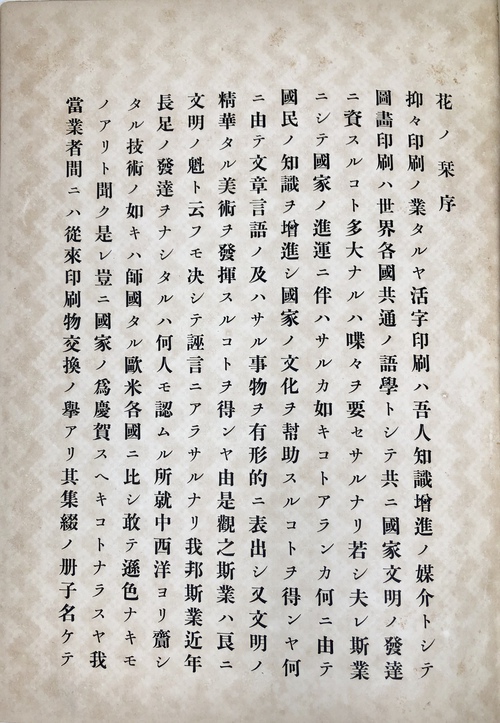 花ノ栞序
抑々印刷ノ業タルヤ活字印刷ハ吾人知識增進ノ媒介トシテ
圖畵印刷ハ世界各國共通ノ語學トシテ共ニ國家文明ノ發達
ニ資スルコト多大ナルハ喋々ヲ要セサルナリ若シ夫レ斯業
ニシテ國家ノ進運ニ伴ハサルカ如キコトアランカ何ニ由テ
國民ノ知識ヲ增進シ國家ノ文化ヲ幇助スルコトヲ得ンヤ何
ニ由テ文章言語ノ及ハサル事物ヲ有形的ニ表出シ又文明ノ
精華タル美術ヲ發揮スルコトヲ得ンヤ由是觀之斯業ハ良ニ
文明ノ魁ト云フモ決シテ誣言ニアラサルナリ我邦斯業近年
長足ノ發達ヲナシタルハ何人モ認ムル所就中西洋ヨリ齎シ
タル技術ノ如キハ師國タル歐米各國ニ比シ敢テ遜色ナキモ
ノアリト聞ク是レ豈ニ國家ノ爲慶賀スヘキコトナラスヤ我
當業者間ニハ從來印刷物交換ノ擧アリ其集綴ノ册子名ケテ